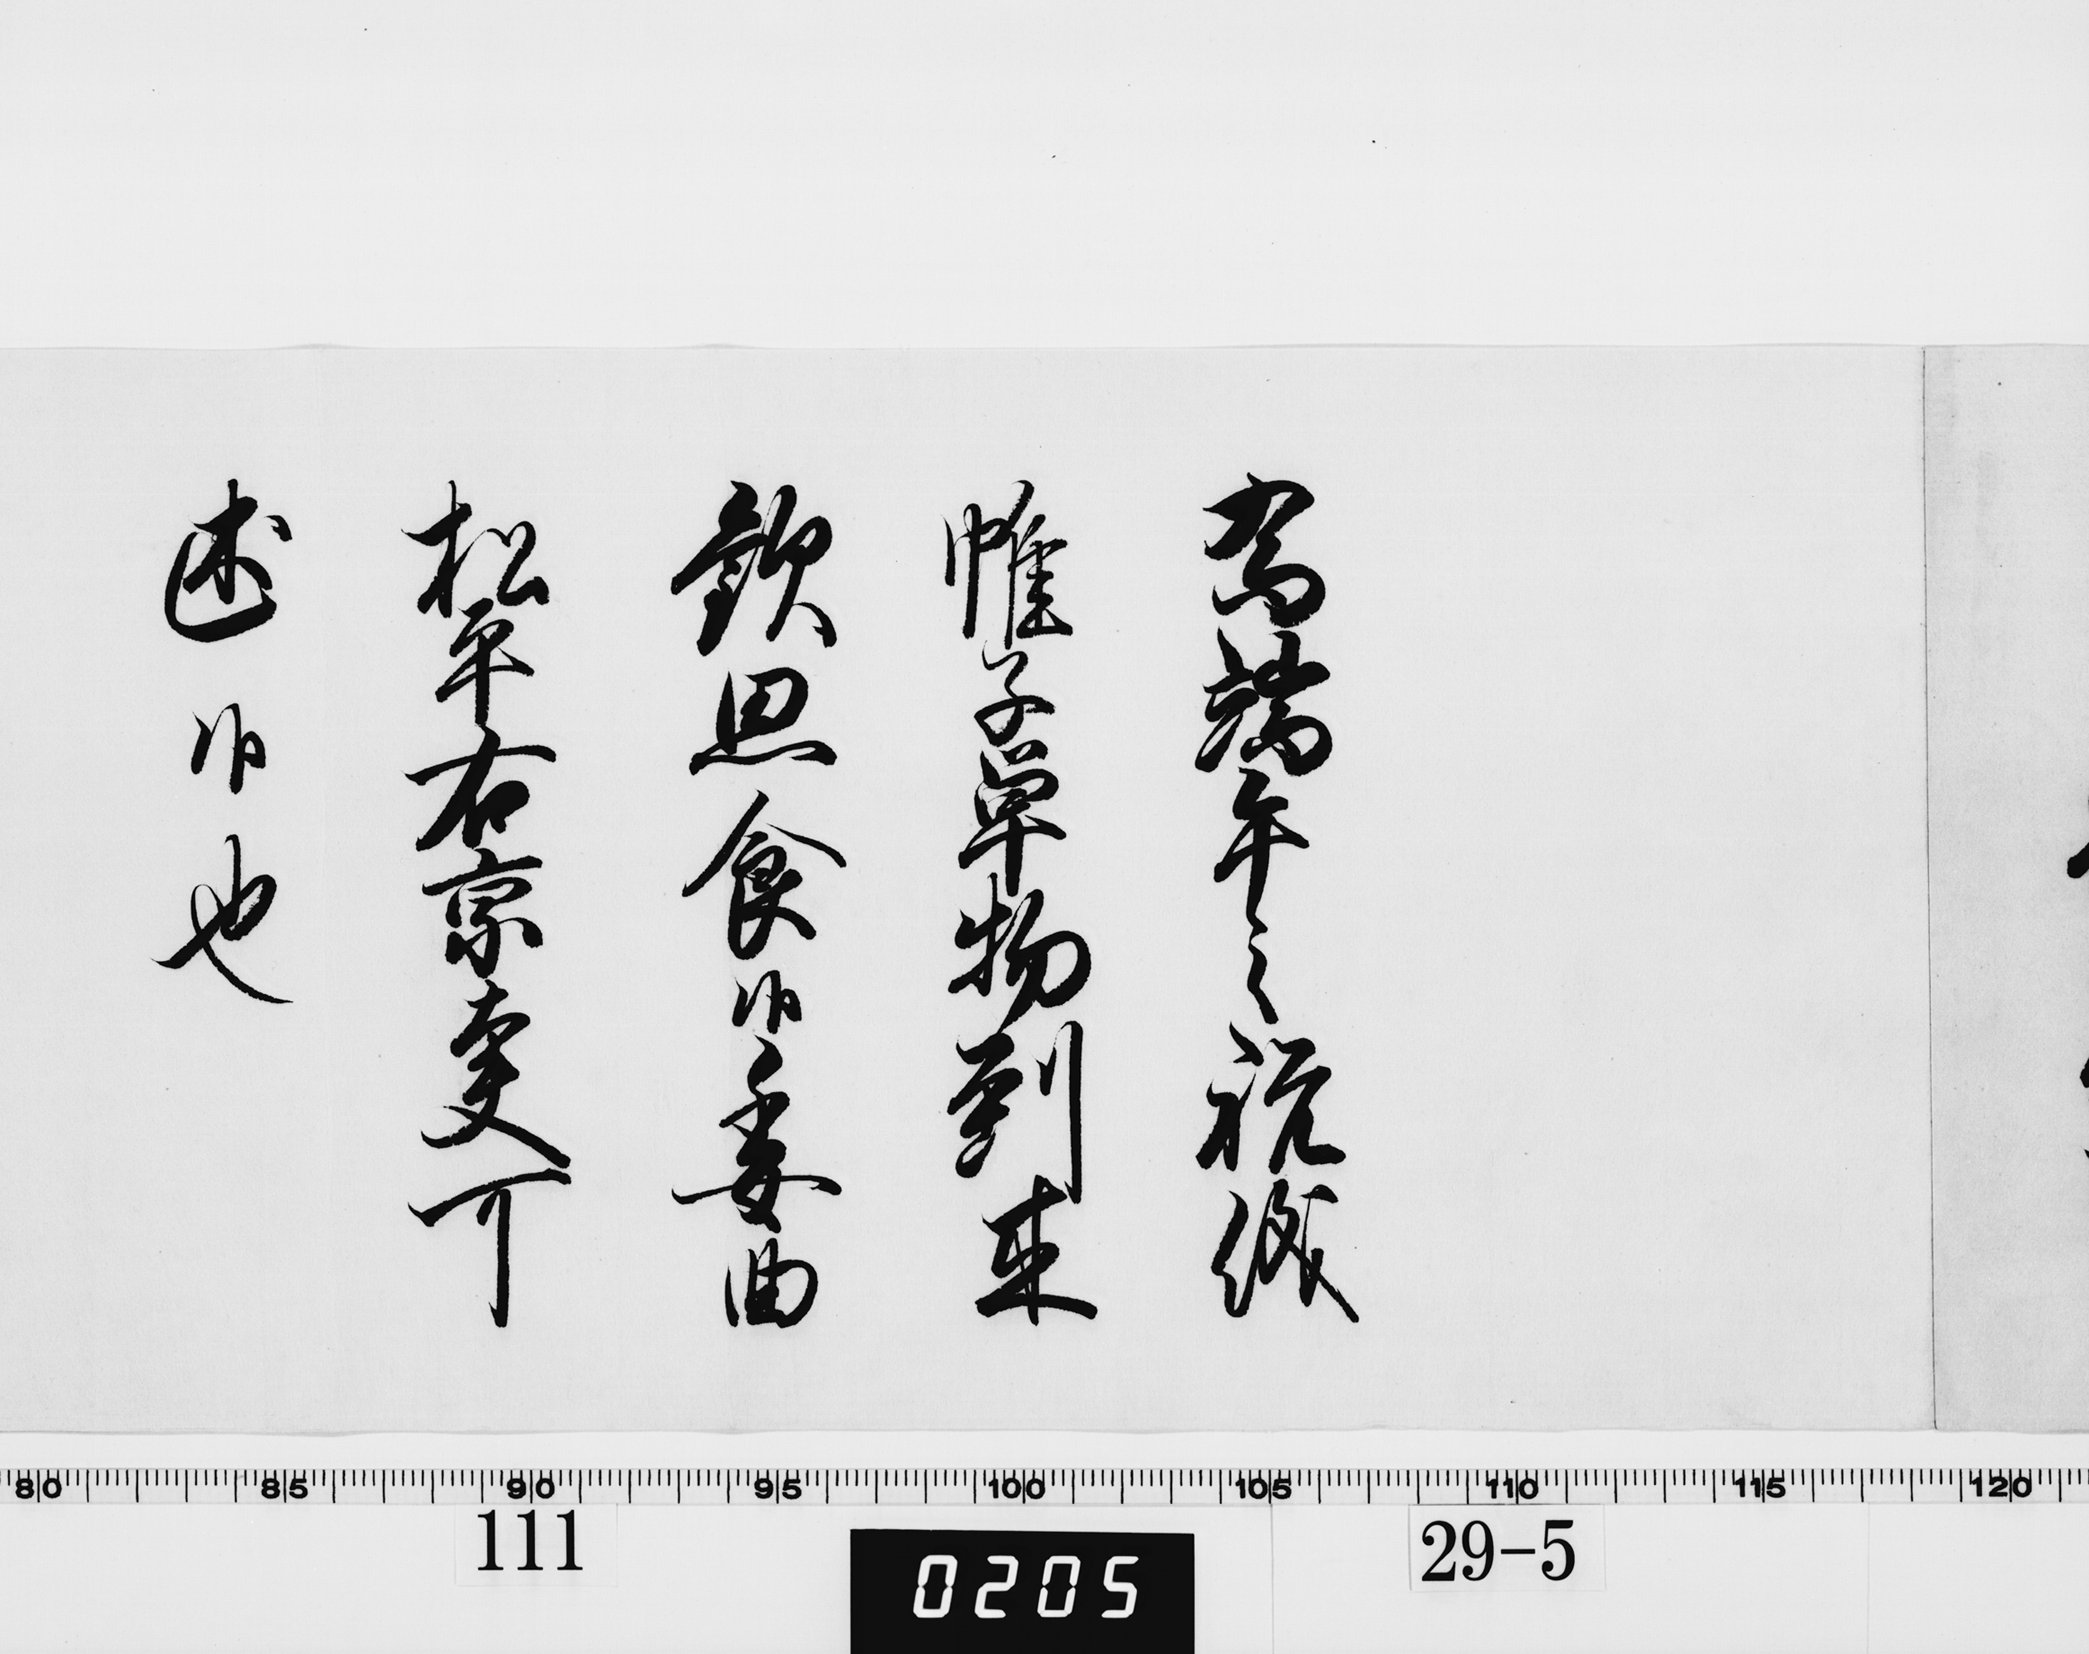 為端午之祝儀
帷子単物到来
歓思食候委曲
松平右京大夫可
述候也
80 85 90 95 100 105 110 115 120
111
0205
29-5